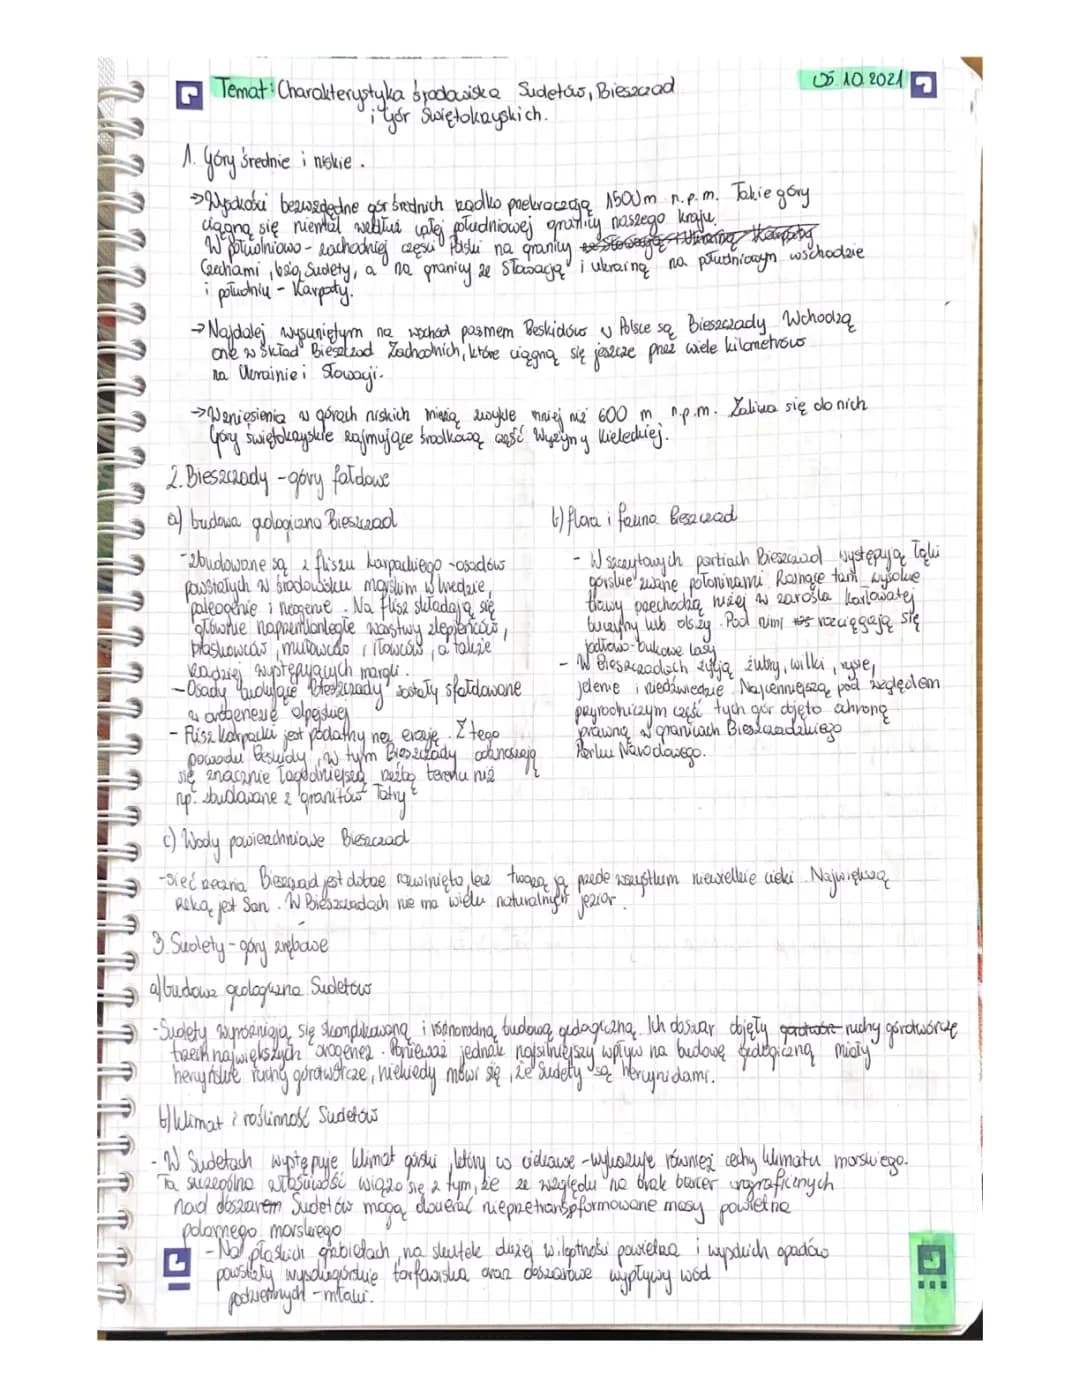 Temat: Charakterystyka środowiska Sudetów, Bieszczad
05.10.2021
i Gór Świętokrzyskich.
1. Góry średnie i niskie.
→Wysokości bezwzględne gór średnich rzadko przekraczają 1500m n.p.m. Takie góry
ciągną się niemal wzdłuż całej południowej granicy naszego kraju.
W południowo-zachodniej części Polski na granicy ze Słowacją i Ukrainą Karpaty
Czechami, leżą Sudety, a na granicy ze Słowacją i Ukrainą na południowym wschodzie
i południu - Karpaty.
→Najdalej wysuniętym na wschód pasmem Beskidów w Polsce są Bieszczady. Wchodzą
one w skład Bieszczad Zachodnich, które ciągną się jeszcze przez wiele kilometrów
na Ukrainie i Słowacji.
→Wzniesienia w górach niskich mierzą zwykle mniej niż 600 m n.p.m. Zalicza się do nich
Góry Świętokrzyskie zajmujące środkową część Wyżyny Kieleckiej.
2. Bieszczady - góry fałdowe
a) budowa geologiczna Bieszczad
-zbudowane są z fliszu karpackiego -osadów
powstałych w środowisku morskim w kredzie,
paleogenie i neogenie. Na flisz składają się
głównie naprzemianległe warstwy zlepieńców,
piaskowców, mułowców i iłowców, a także
rzadziej występujących margli.
-Osady budujące Bieszczady zostały sfałdowane
w orogenezie alpejskiej
- Flisz karpacki jest podatny na erozję. Z tego
powodu Beskidy, w tym Bieszczady odznaczają
się znacznie łagodniejszą rzeźbą terenu niż
np. zbudowane z granitów Tatry
b) flora i fauna Bieszczad
- W szczytowych partiach Bieszczad występują łąki
górskie zwane połoninami. Rosnące tam wysokie
trawy przechodzą niżej w zarośla karłowatej
buczyny lub olszy. Pod nimi rozciągają się
jodłowo-bukowe lasy
- W Bieszczadach żyją żubry, wilki, rysie,
jelenie i niedźwiedzie. Najcenniejszą pod względem
przyrodniczym część tych gór objęto ochroną
prawną w granicach Bieszczadzkiego
Parku Narodowego.
c) Wody powierzchniowe Bieszczad
-sieć rzeczna Bieszczad jest dobrze rozwinięta, lecz tworzą ją przede wszystkim niewielkie cieki. Największą
rzeką jest San. W Bieszczadach nie ma wielu naturalnych jezior.
3. Sudety - góry zrębowe
a) budowa geologiczna Sudetów
-Sudety wyróżniają się skomplikowaną i różnorodną budową geologiczną. Ich obszar objęły ruchy górotwórcze
trzech największych orogenez. Ponieważ jednak najsilniejszy wpływ na budowę geologiczną miały
hercyńskie ruchy górotwórcze, niekiedy mówi się, że Sudety są hercynidami.
b) klimat i roślinność Sudetów
- W Sudetach występuje klimat górski, który co ciekawe - wykazuje również cechy klimatu morskiego.
Ta szczególna właściwość wiąże się z tym, że ze względu na brak barier orograficznych
nad obszarem Sudetów mogą docierać nieprzetransformowane masy powietrza
polarnego morskiego
- Na płaskich grzbietach, na skutek dużej wilgotności powietrza i wysokich opadów
powstały wysokogórskie torfowiska oraz obszarowe wypływy wód
podziemnych - młaki.